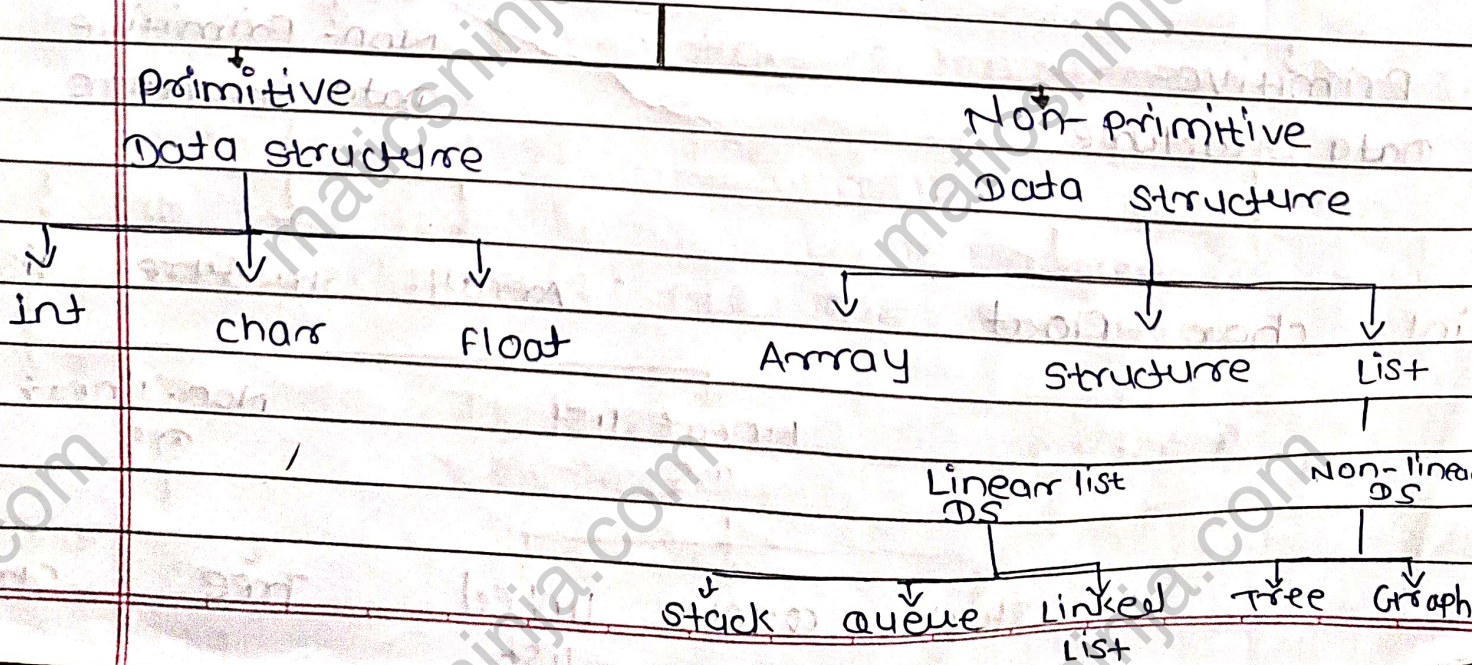 Primitive
Data structure
Non-primitive
Data structure
int
char
float
Array
structure
List
Linear list
DS
Non-linea
DS
Stack
queue
Linked
List
Tree
Graph
maticsninja.com